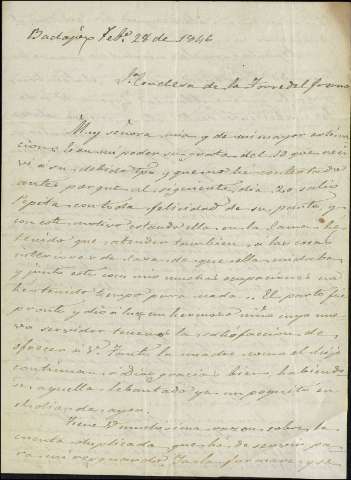 Badajoz Feb.º 28 de 1846
S.ª Condesa de la Torre del fresno
Muy señora mia y de mi mayor estima
cion: Es en mi poder su carta del 12 que reci
vi a su debido tpo, y que no he contestado
antes porque al siguiente dia 20 salió
Pepita con toda felicidad de su parto, y
con este motivo estando ella en la cama he
tenido que atender tambien a las cosas
interiores de la casa de que ella cuidaba
y junto esto con mis muchas ocupaciones no
he tenido tiempo para nada. El parto fue
pronto y dió a luz un hermoso niño cuyo nue
vo servidor tenemos la satisfaccion de
ofrecer á V. Tanto la madre como el hijo
continuan, a Dios gracias, bien, habiendo
se aquella lebantado ya un poquito en
el dia de ayer.
Tiene V. muchisima razon sobre la
cuenta duplicada que ha de servir pa
ra mi resguardo. Ya la formaré y se